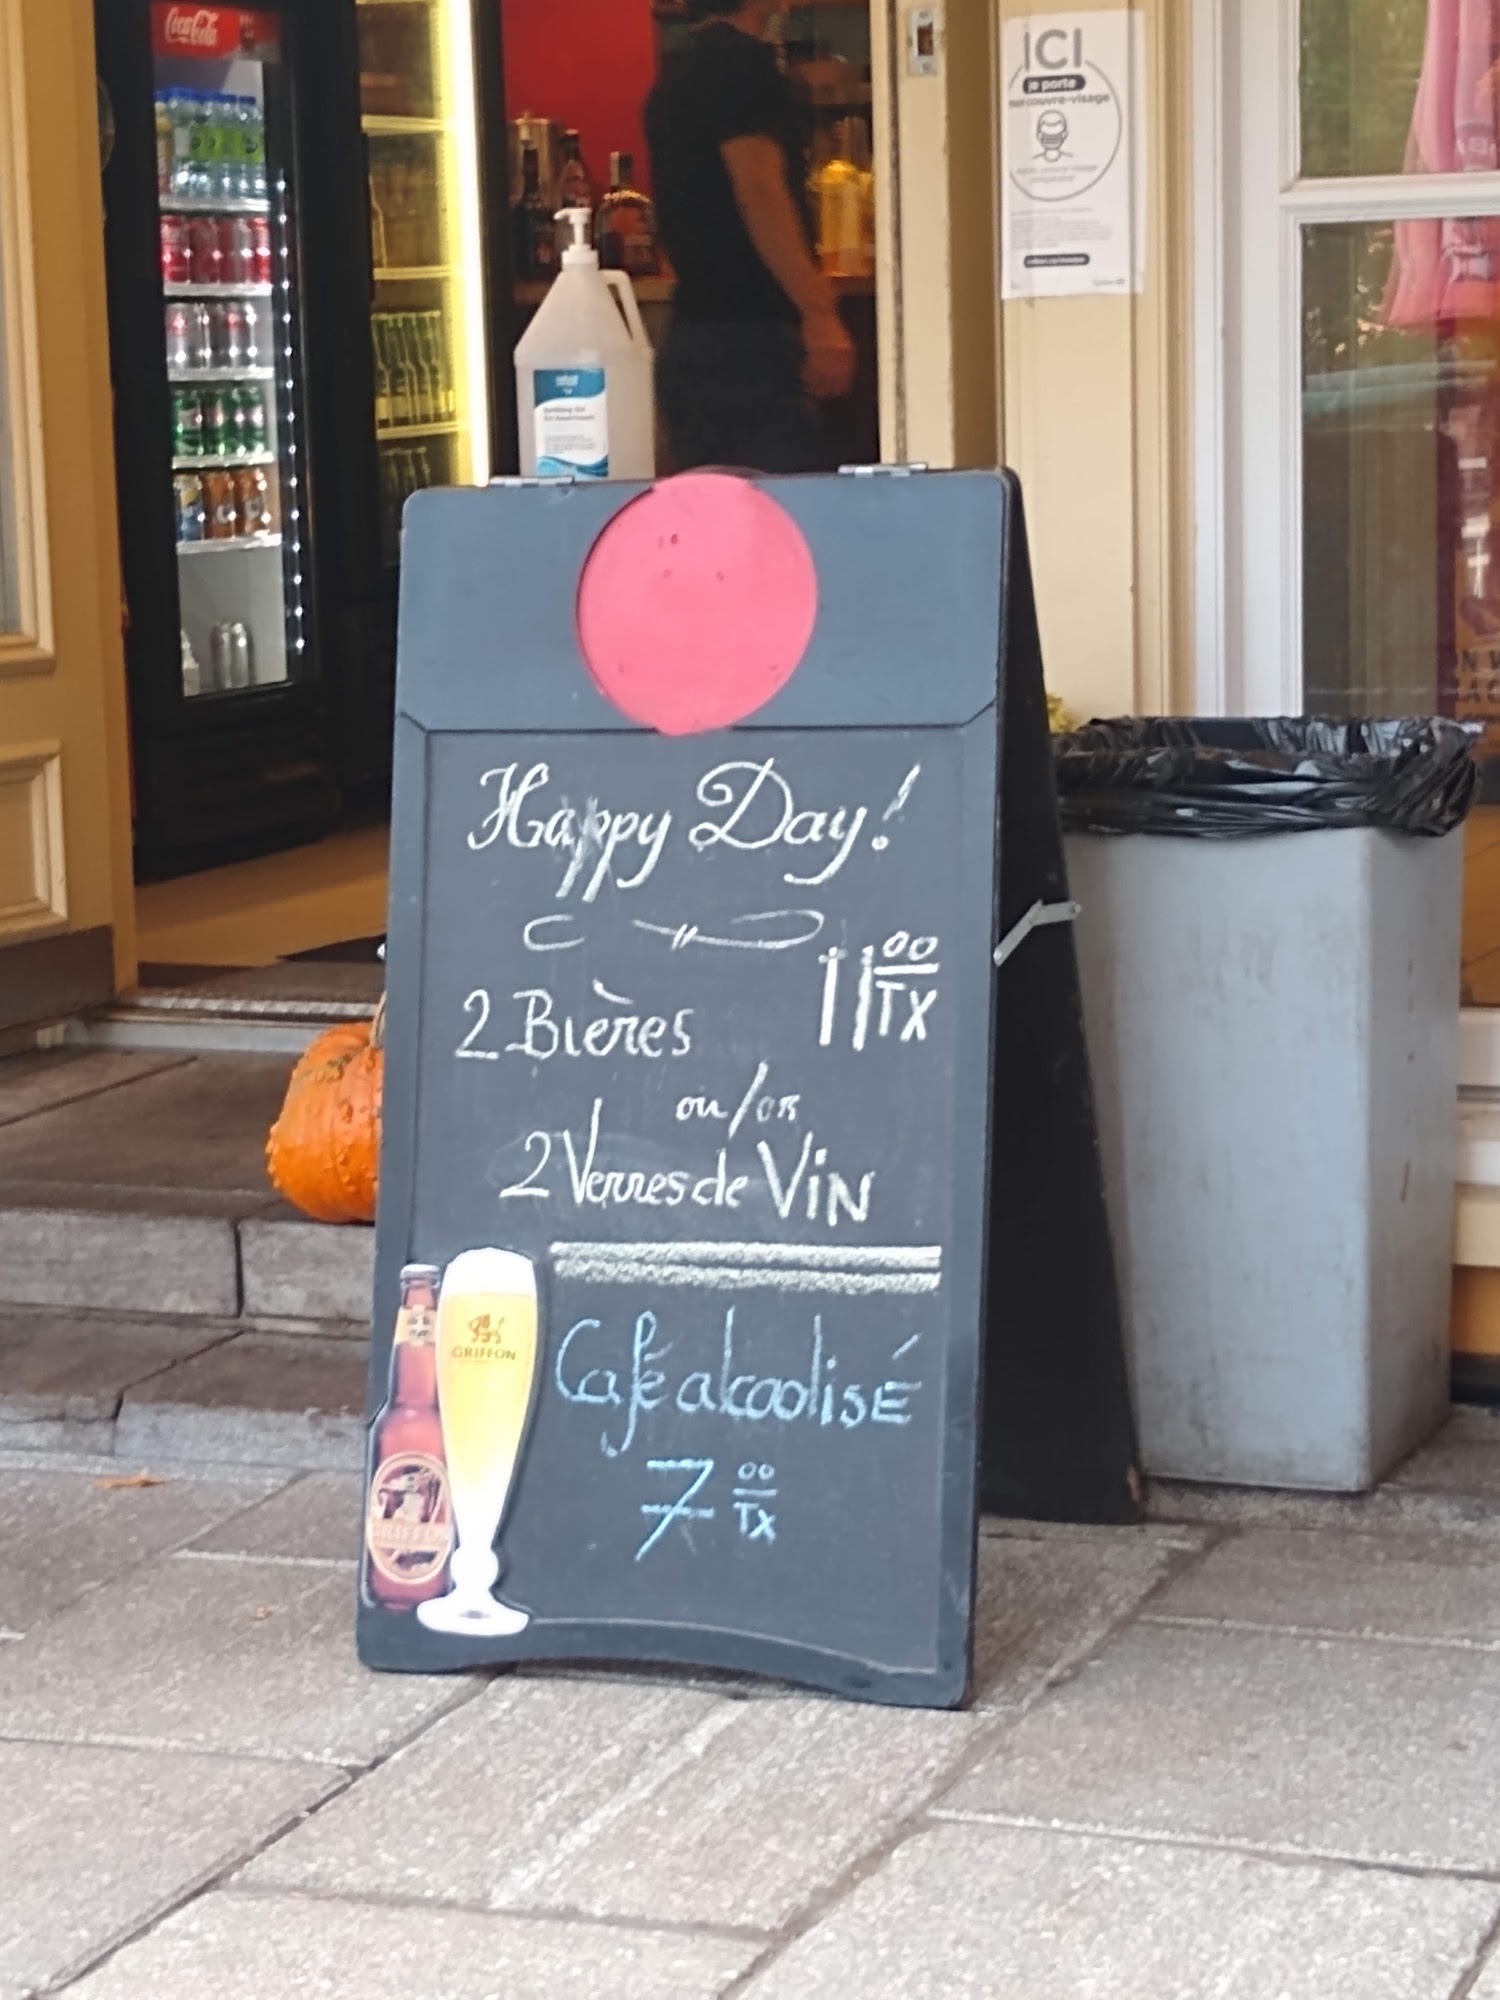 Coca-Cola
ICI
je porte
mon couvre-visage
Happy Day!
2 Bières 11 00 TX
ou/or
2 Verres de VIN
GRIFFON
Café alcoolisé
7 00 TX
GRIFFON